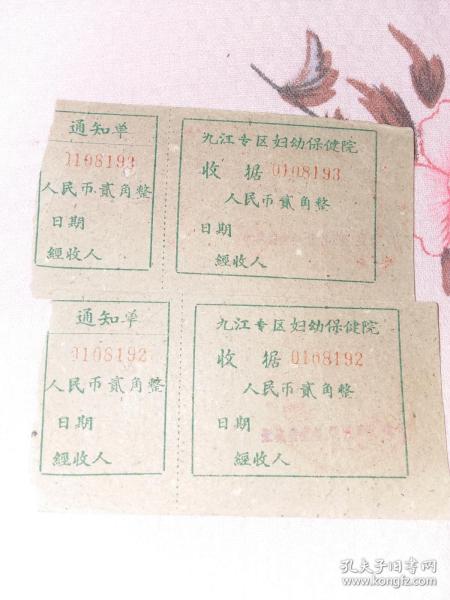 通知单
0108193
人民币贰角整
日期
經收人
九江专区妇幼保健院
收据 0108193
人民币貳角整
日期
經收人
通知单
0108192
人民币貳角整
日期
經收人
九江专区妇幼保健院
收据 0108192
人民币貳角整
日期
經收人
孔夫子旧书网
www.kongfz.com